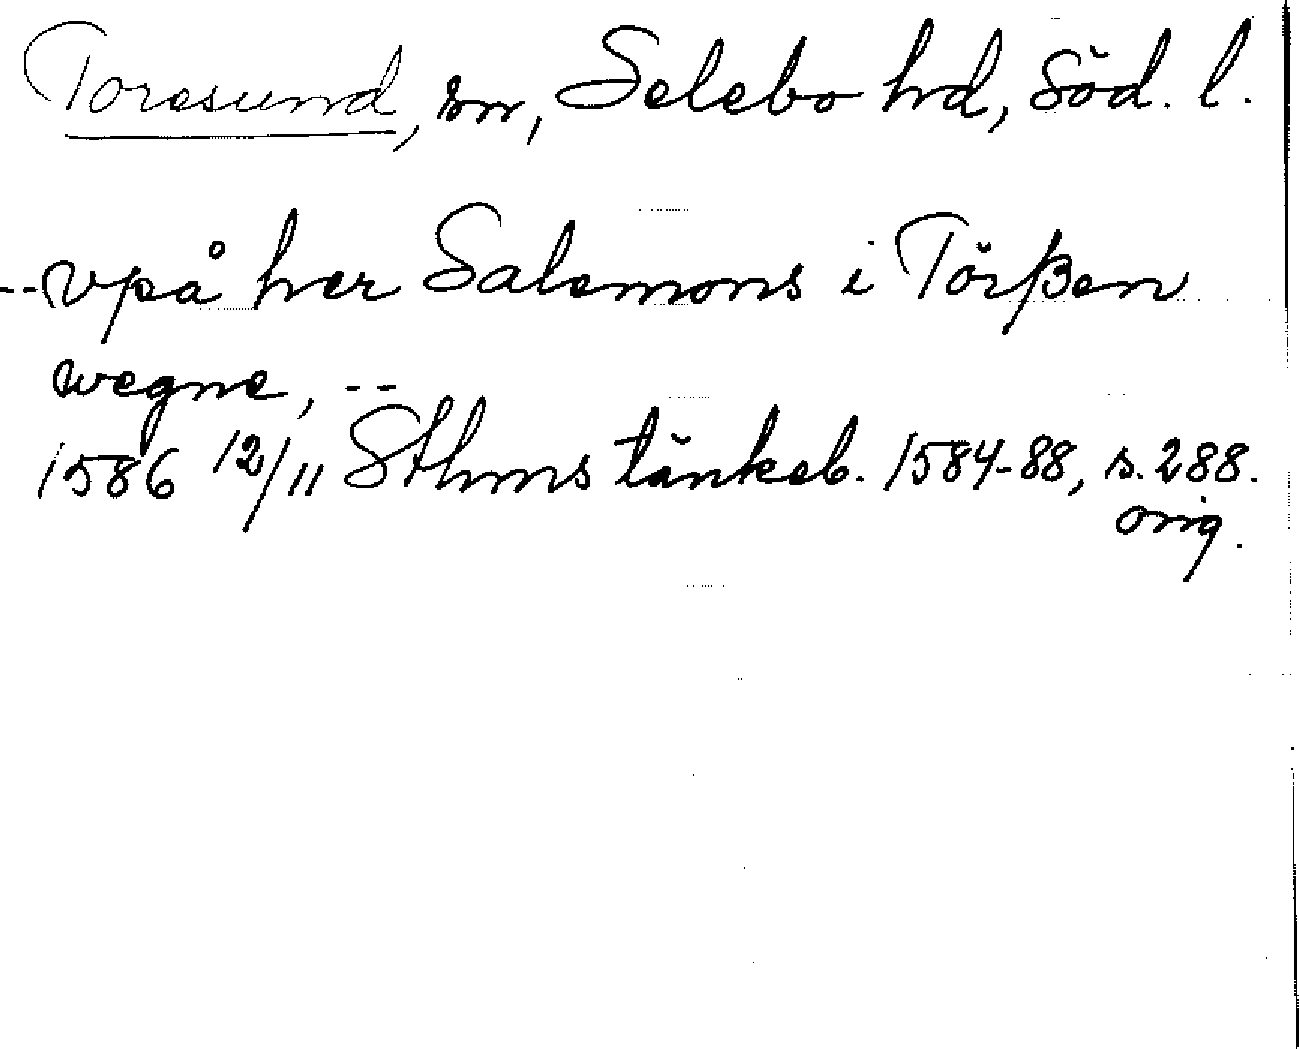 Toresund, sn, Selebo hd, Söd. l.
--vpå her Salemons i Törßen
wegne, --
1586 12/11 Sthms tänkeb. 1584-88, s. 288.
orig.